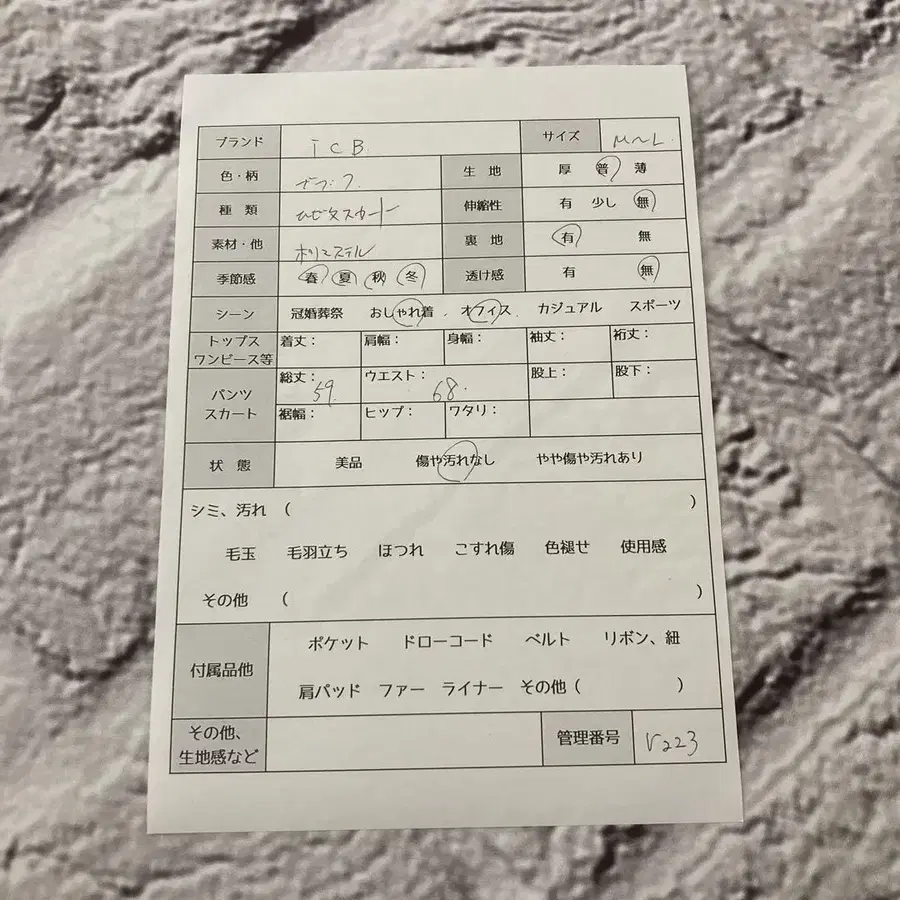 ブランド iCB サイズ M〜L.
色・柄 生地 厚 普 薄
種類 ひざ丈スカート 伸縮性 有 少し 無
素材・他 ポリエステル 裏地 有 無
季節感 春 夏 秋 冬 透け感 有 無
シーン 冠婚葬祭 おしゃれ着 オフィス カジュアル スポーツ
トップス
ワンピース等 着丈： 肩幅： 身幅： 袖丈： 裄丈：
パンツ
スカート 総丈： 59. ウエスト： 68. 股上： 股下：
裾幅： ヒップ： ワタリ：
状態 美品 傷や汚れなし やや傷や汚れあり
シミ、汚れ ( )
毛玉 毛羽立ち ほつれ こすれ傷 色褪せ 使用感
その他 ( )
付属品他 ポケット ドローコード ベルト リボン、紐
肩パッド ファー ライナー その他 ( )
その他、
生地感など 管理番号 V223